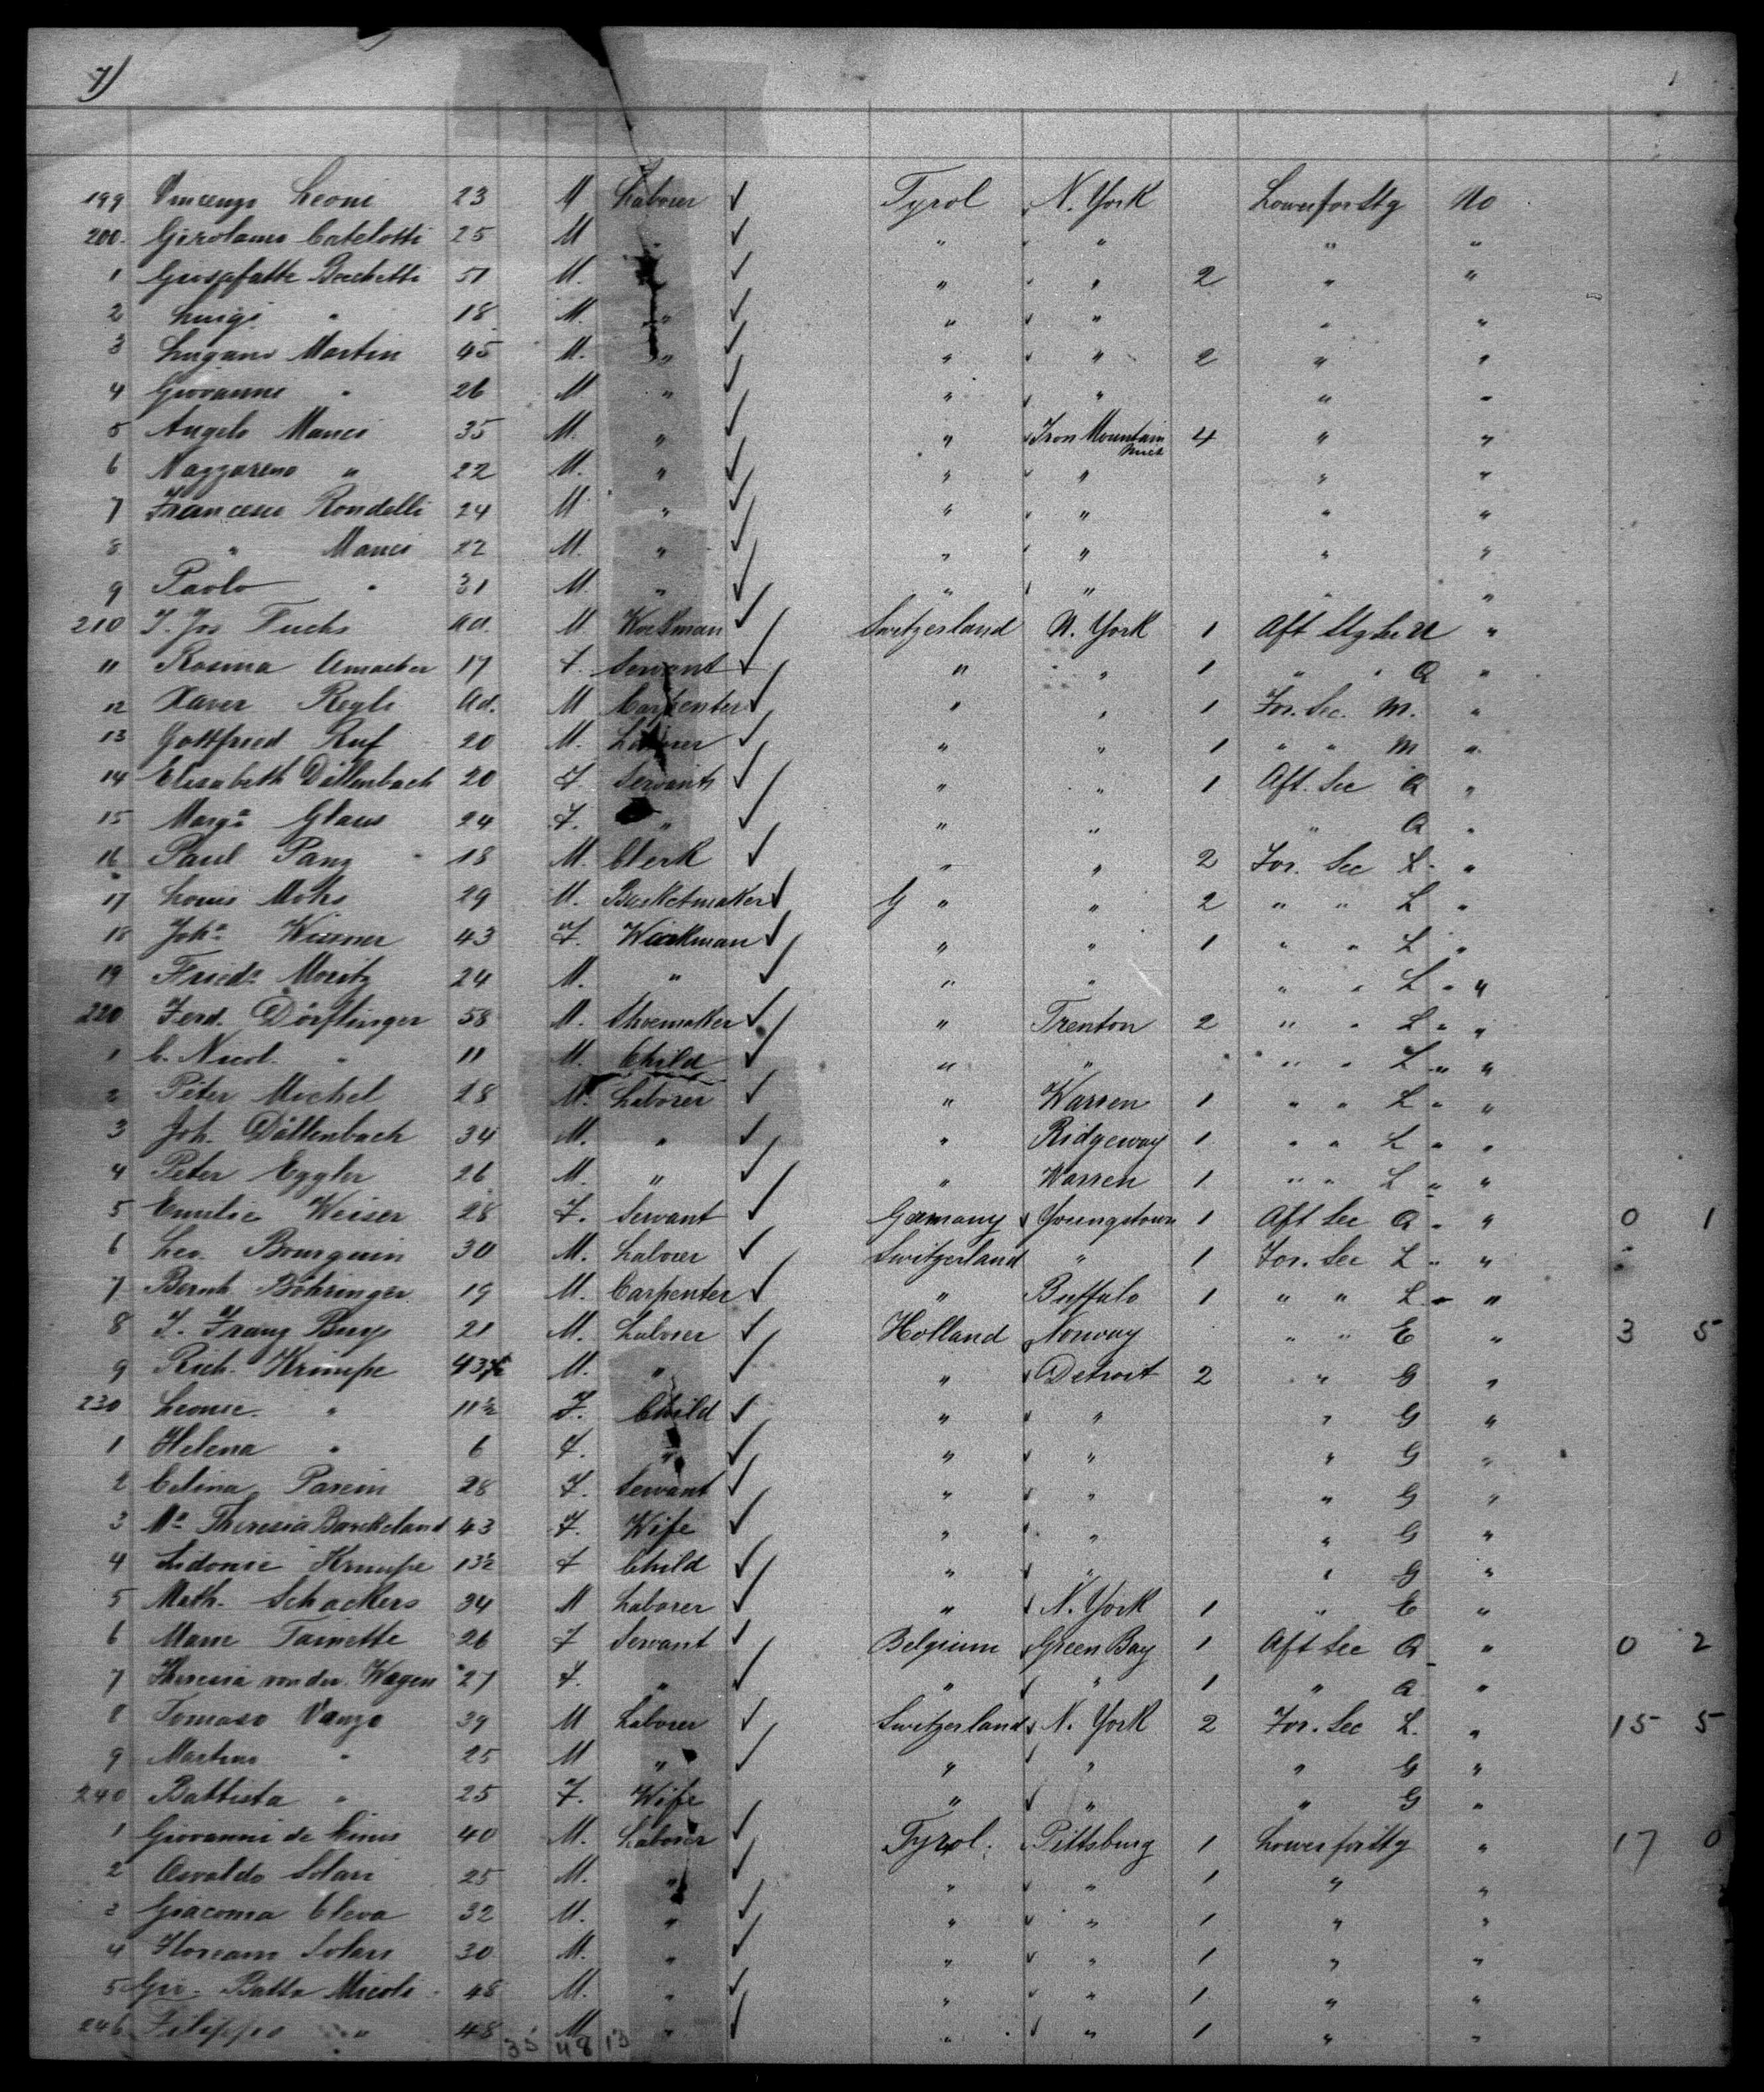 7)
199 Vincenzo Leoni 23 M Laborer ✓ Tyrol N. York Lower for Stg No
200. Girolamo Catelotti 25 M " ✓ " " " "
1 Bachetti 51 M. " ✓ " " 2 " "
2 Luigi " 18 M. " ✓ " " " "
3 Lugano Martin 45 M. " ✓ " " 2 " "
4 Giovanni " 26 M " ✓ " " " "
5 Angelo Manci 35 M. " ✓ " Iron Mountain Mich 4 " "
6 Nazzareno " 22 M. " ✓ " " " "
7 Francesco Rondelli 24 M " ✓ " " " "
8 " Manci 22 M. " ✓ " " " "
9 Paolo " 31 M. " ✓ " " " "
210 J. Jos Fuchs Ad. M Workman ✓ Switzerland N. York 1 Aft Stg "
11 Rosina Amacher 17 F. Servant ✓ " " 1 " " A "
12 Xaver Regli Ad. M Carpenter ✓ " " 1 For. Sec. M. "
13 Gottfried Ruf 20 M. Laborer ✓ " " 1 " " M "
14 Elisabeth Dällenbach 20 F. Servant ✓ " " 1 Aft. Sec A "
15 Marga Glaus 24 F. " ✓ " " " A "
16 Paul Panz 18 M. Clerk ✓ " " 2 For. Sec L. "
17 Louis Mohs 29 M. Basketmaker ✓ G " " 2 " " L "
18 Joha Wismer 43 F. Workman ✓ " " 1 " " L "
19 Friedr Moritz 24 M. " ✓ " " " " L " "
220 Ferd. Dörflinger 58 M. Shoemaker ✓ " Trenton 2 " " L " "
1 C. Nicol. " 11 M. Child ✓ " " " " L " "
2 Peter Michel 28 M. Laborer ✓ " Warren 1 " " L " "
3 Joh. Dällenbach 34 M. " ✓ " Ridgeway 1 " " L " "
4 Peter Eggler 26 M. " ✓ " Warren 1 " " L " "
5 Emilie Weiser 28 F. Servant ✓ Germany Youngstown 1 Aft Sec A " " 0 1
6 Leo. Bourquin 30 M. Laborer ✓ Switzerland " 1 For. Sec L " "
7 Bernh Böhringer 19 M. Carpenter ✓ " Buffalo 1 " " L " "
8 J. Franz Buys 21 M. Laborer ✓ Holland Norway " " E " 3 5
9 Rich. Krimpe 43 M. " ✓ " Detroit 2 " G "
230 Leonie " 11½ F. Child ✓ " " " G "
1 Helena " 6 F. " ✓ " " " G "
2 Celina Parein 28 F. Servant ✓ " " " G "
3 Ma Theresia Barckeland 43 F. Wife ✓ " " " G "
4 Sidonie Krimpe 13½ F Child ✓ " " " G "
5 Math. Schackers 34 M Laborer ✓ " N. York 1 " E "
6 Marie Tainette 26 F Servant ✓ Belgium Green Bay 1 Aft Sec A " 0 2
7 Theresia von der Wagen 27 F. " ✓ " " 1 " A "
8 Tomaso Vanzo 39 M Laborer ✓ Switzerland N. York 2 For. Sec L. " 15 5
9 Martino " 25 M " ✓ " " " G "
240 Battista " 25 F. Wife " " " G "
1 Giovanni de 40 M. Laborer ✓ Tyrol. Pittsburg 1 Lower for Stg " 17 0
2 Osvaldo Solari 25 M. " ✓ " " 1 " "
3 Giacoma Cleva 32 M. " ✓ " " 1 " "
4 Floreano Solari 30 M. " ✓ " " 1 " "
5 Gio. Batta Micoli 48 M. " ✓ " " 1 " "
246 Filippo " 48 M " ✓ " " 1 " "
35 48 13